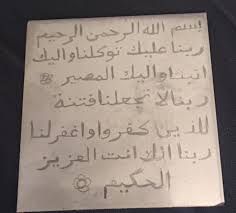 بسم الله الرحمن الرحيم
ربنا عليك توكلنا واليك
انبنا واليك المصير
ربنا لا تجعلنا فتنة
للذين كفروا واغفر لنا
ربنا انك انت العزيز
الحكيم